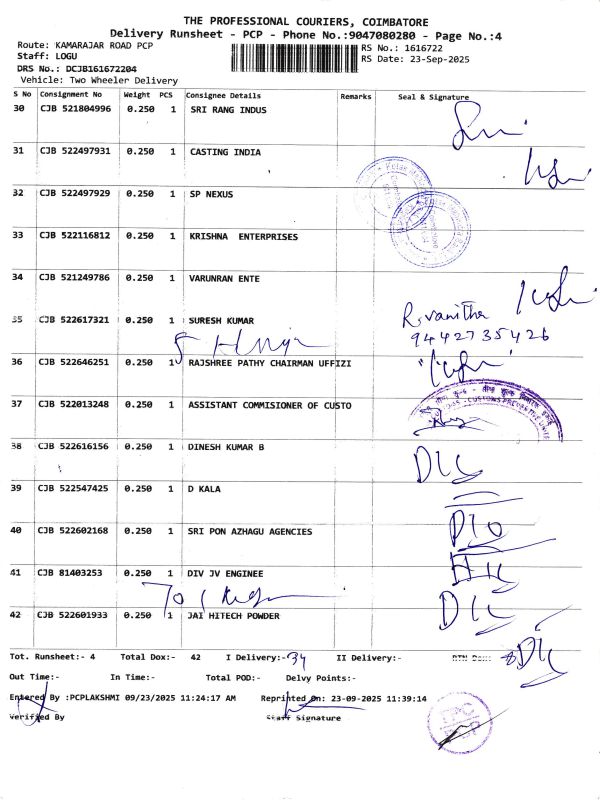 THE PROFESSIONAL COURIERS, COIMBATORE
Delivery Runsheet - PCP - Phone No.:9047080280 - Page No.:4
Route: KAMARAJAR ROAD PCP
RS No.: 1616722
Staff: LOGU
RS Date: 23-Sep-2025
DRS No.: DCJB161672204
Vehicle: Two Wheeler Delivery
S No Consignment No Weight PCS Consignee Details Remarks Seal & Signature
30 CJB 521804996 0.250 1 SRI RANG INDUS
31 CJB 522497931 0.250 1 CASTING INDIA
32 CJB 522497929 0.250 1 SP NEXUS
33 CJB 522116812 0.250 1 KRISHNA ENTERPRISES
34 CJB 521249786 0.250 1 VARUNRAN ENTE
35 CJB 522617321 0.250 1 SURESH KUMAR R. vanitha
9442735426
36 CJB 522646251 0.250 1 RAJSHREE PATHY CHAIRMAN UFFIZI
37 CJB 522013248 0.250 1 ASSISTANT COMMISIONER OF CUSTO
CUSTOMS PREVENTIVE UNIT
38 CJB 522616156 1 DINESH KUMAR B
39 CJB 522547425 0.250 1 D KALA
40 CJB 522602168 0.250 1 SRI PON AZHAGU AGENCIES
41 CJB 81403253 0.250 1 DIV JV ENGINEE
42 CJB 522601933 0.250 1 JAI HITECH POWDER
Tot. Runsheet:- 4 Total Dox:- 42 I Delivery:- 34 II Delivery:- RTN Dox:
Out Time:- In Time:- Total POD:- Delvy Points:-
Entered By :PCPLAKSHMI 09/23/2025 11:24:17 AM Reprinted On: 23-09-2025 11:39:14
Verified By Staff Signature